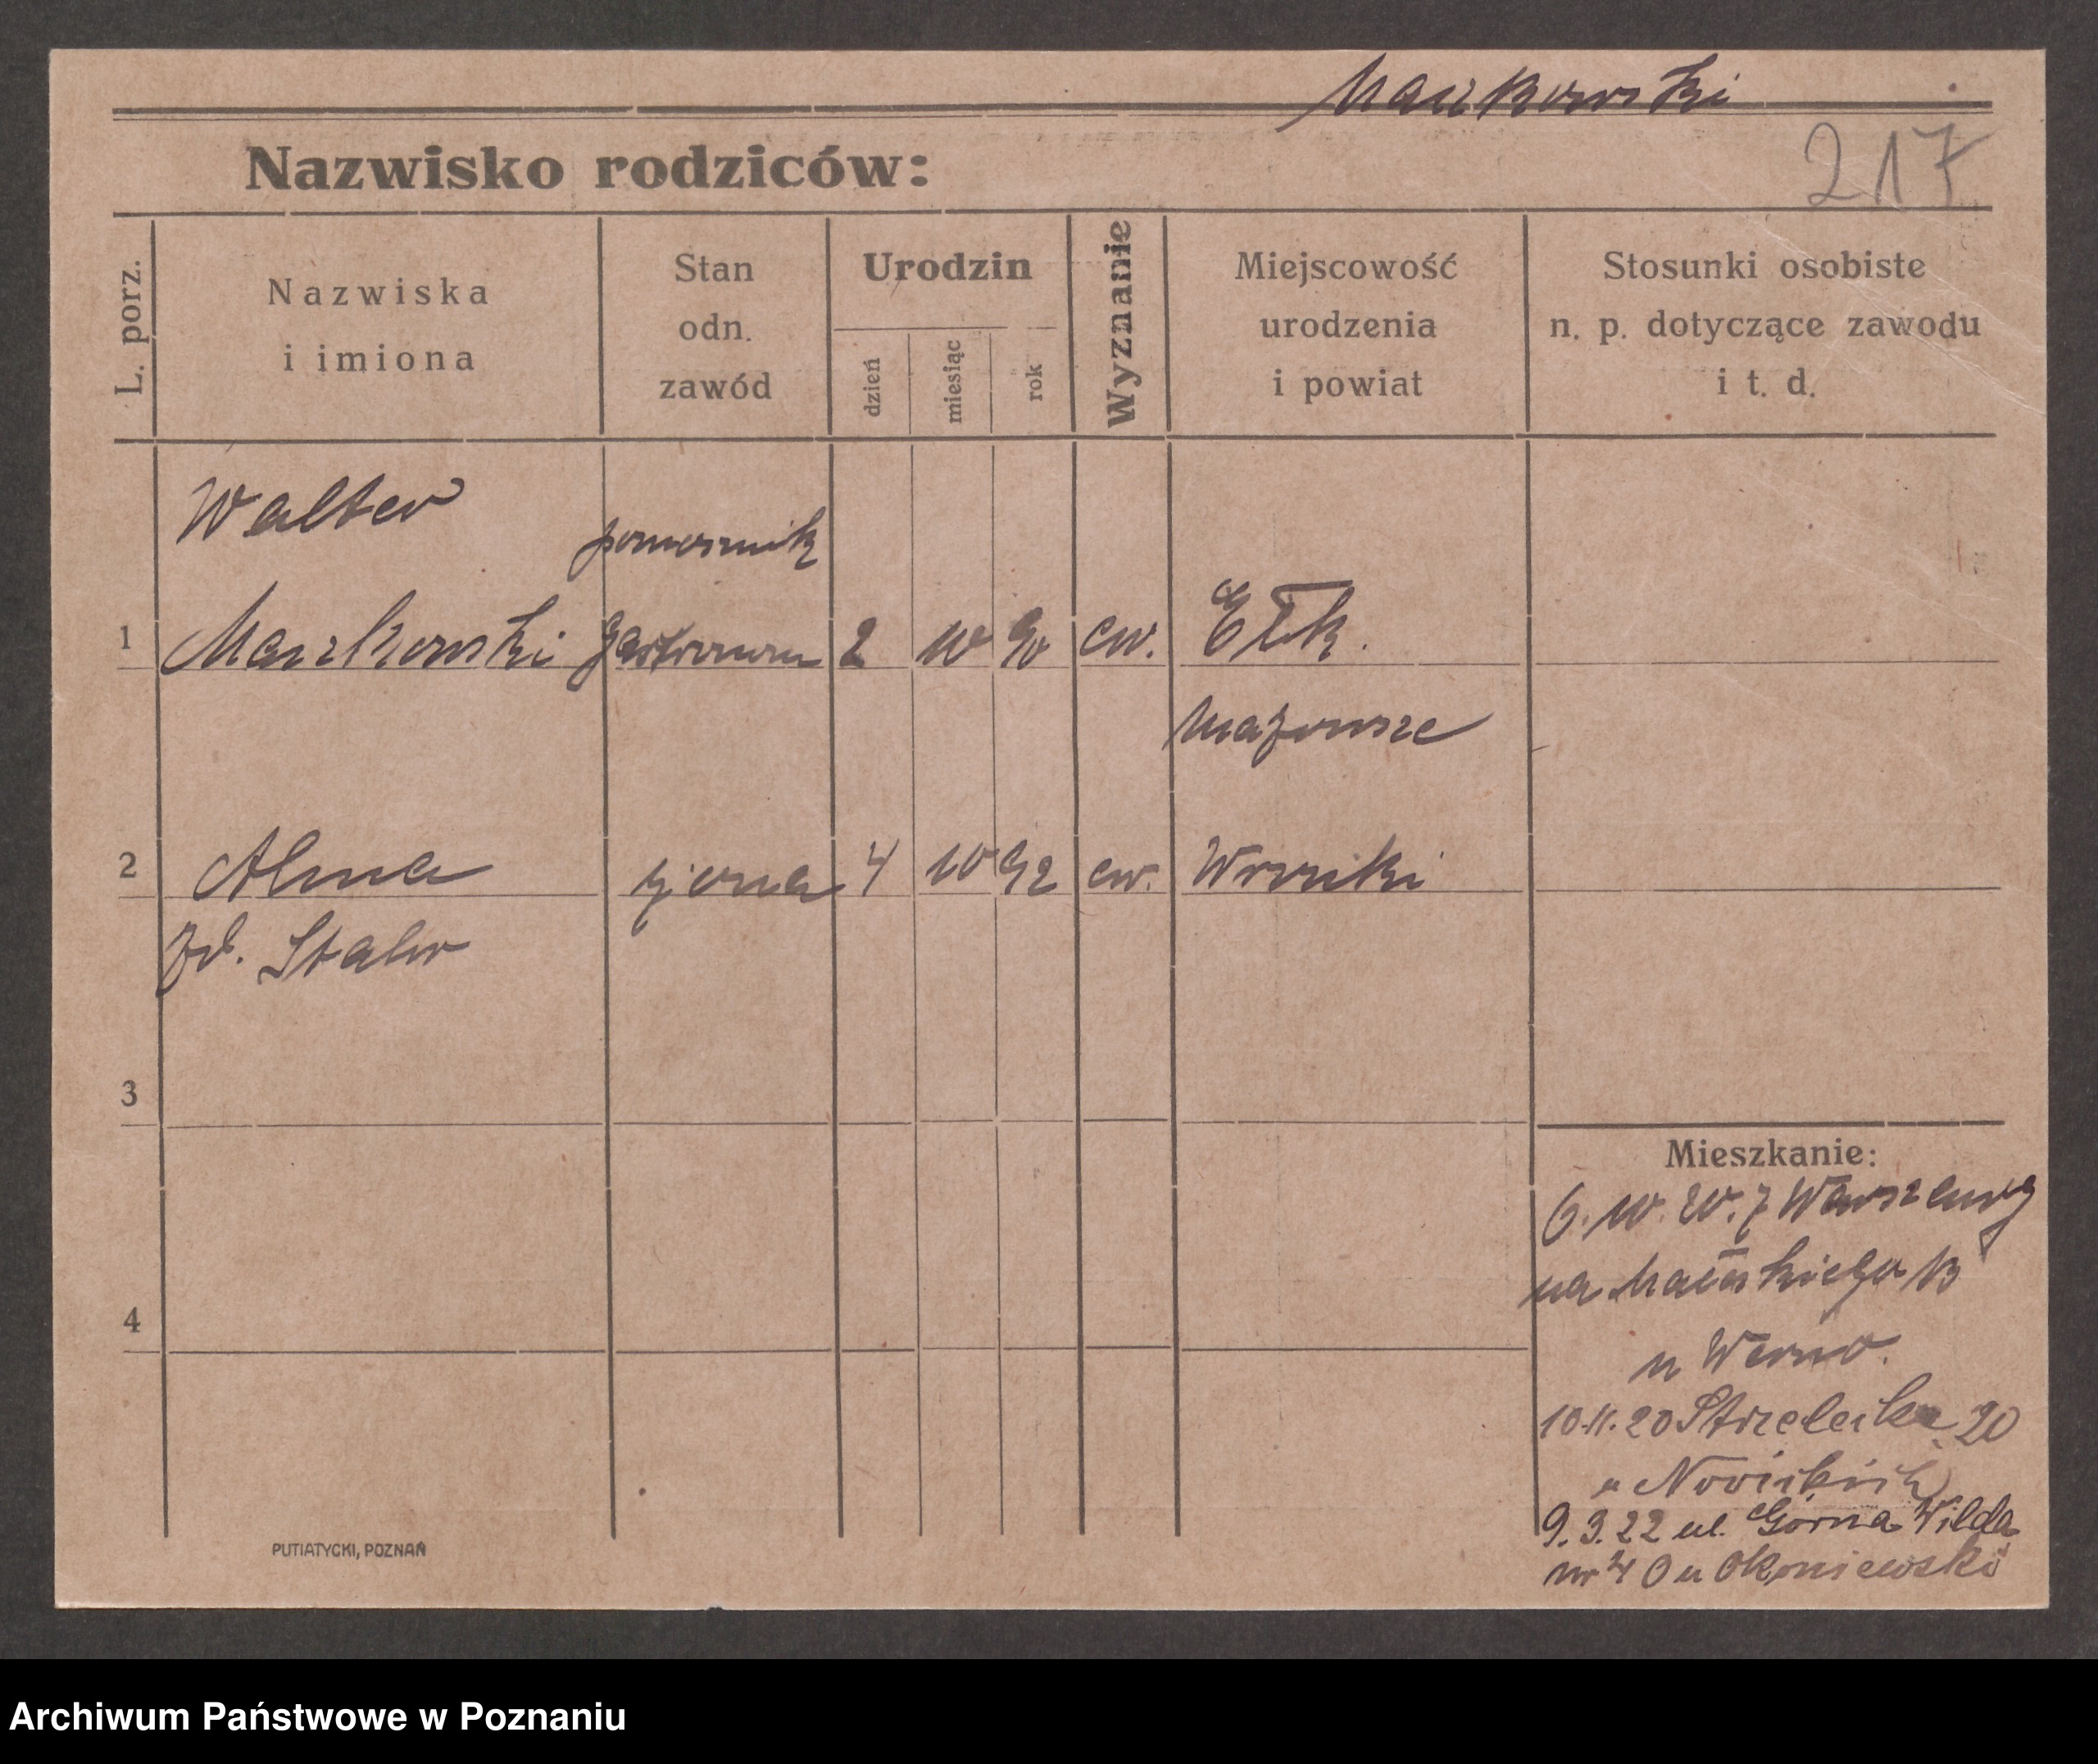 Maczkowski
217
Nazwisko rodziców:
L. porz.
Nazwiska
i imiona
Stan
odn.
zawód
Urodzin
dzień
miesiąc
rok
Wyznanie
Miejscowość
urodzenia
i powiat
Stosunki osobiste
n. p. dotyczące zawodu
i t. d.
Walter
pomocnik
1 Maczkowski gastronom 2 10 90 ew. Ełk.
Mazowsze
2 Alma żona 4 10 92 ew. Wronki
zd. Stahr
3
4
Mieszkanie:
6. 10. 20. z Warszawy
na 13
u
10.11.20 Strzelecka 20
u
9.3.22 ul. Górna Wilda
nr 40 u Okoniewski
PUTIATYCKI, POZNAŃ
Archiwum Państwowe w Poznaniu